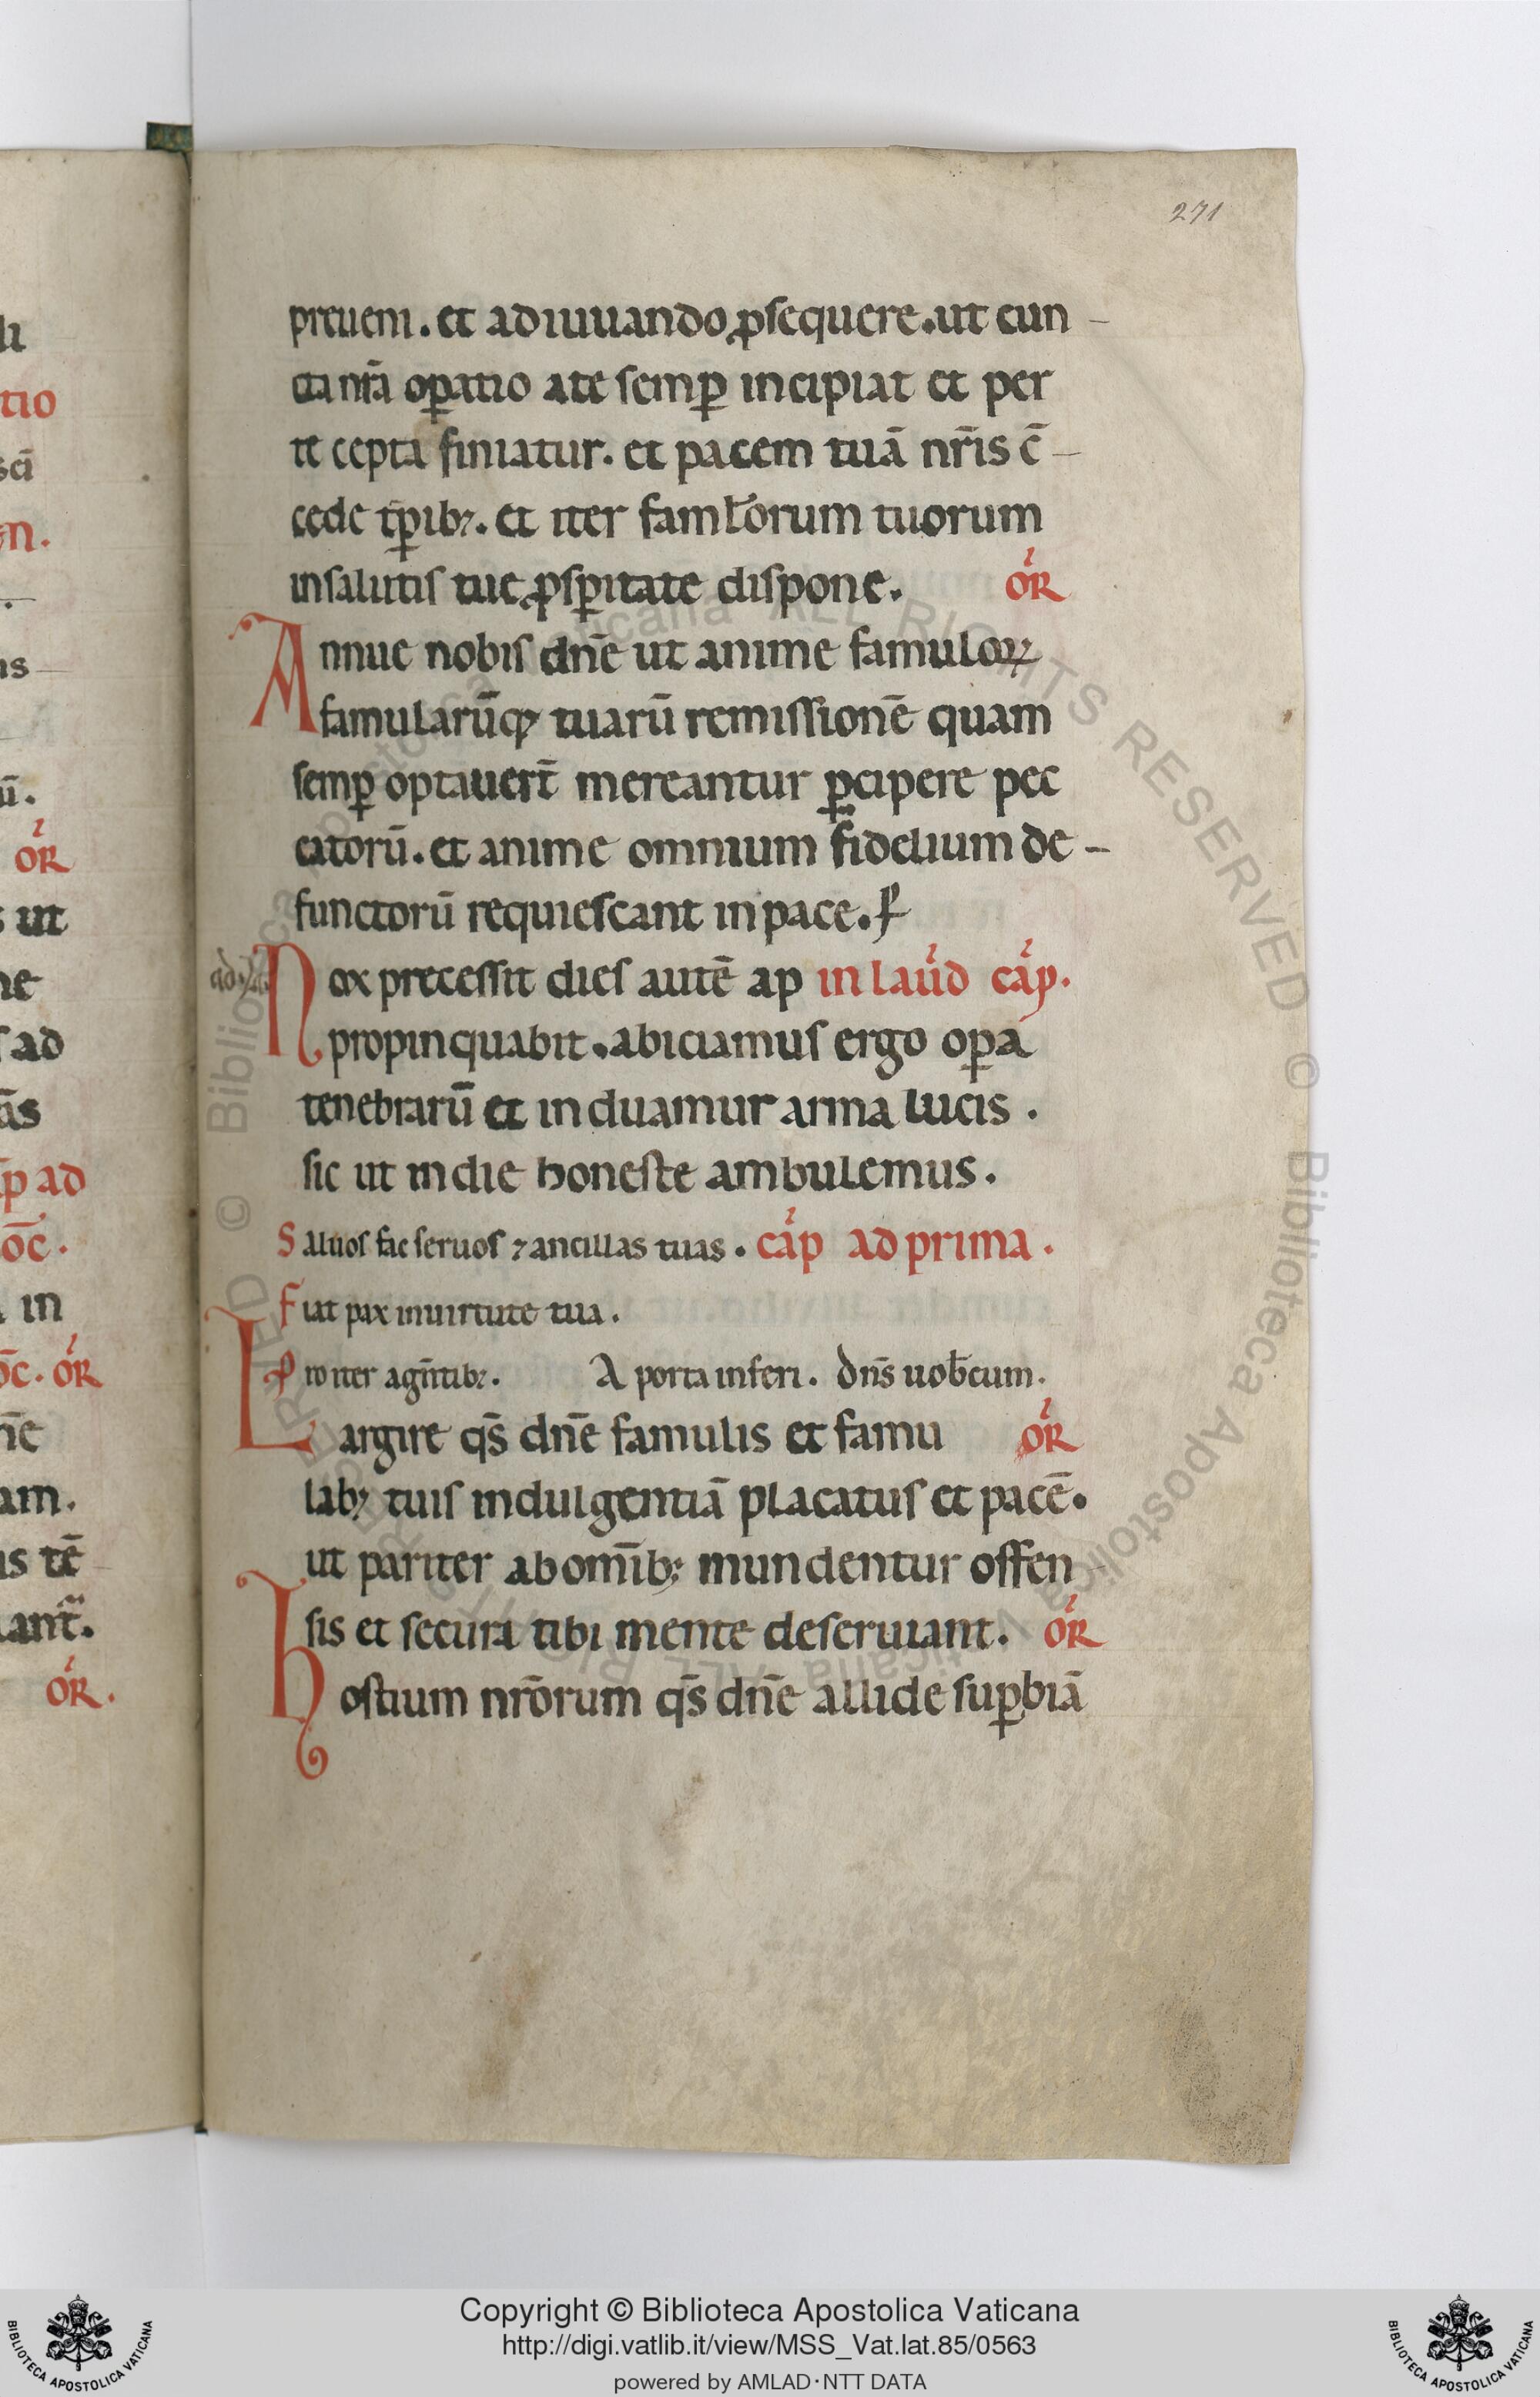 271
preueni. et adiuuando ꝓsequere. ut cun-
cta nr̄a oꝑatio ate semꝑ incipiat et per
te cepta finiatur. et pacem tuā nr̄is c̄-
cede tꝑibꝫ. et iter famłorum tuorum
insalutis tue ꝓsꝑitate dispone. or̄
Annue nobis dn̄e ut anime famuloꝝ
famularūqꝫ tuarū remissionē quam
semꝑ optauert̄ mereantur ꝑcipere pec
catorū. et anime omnium fidelium de-
functorū requiescant inpace.
Nox precessit dies autē ap in laud cap.
propinquabit. abiciamus ergo oꝑa
tenebrarū et induamur arma lucis.
sic ut indie honeste ambulemus.
Saluos fac seruos ⁊ ancillas tuas. cap ad prima.
Fiat pax inuirtute tua.
Pro iter agn̄tibꝫ. A porta inferi. Dn̄s uob̄cum.
Largire qs̄ dn̄e famulis et famu or̄
labꝫ tuis indulgentiā placatus et pacē.
ut pariter abom̄ibꝫ mundentur offen-
sis et secura tibi mente deseruiant. or̄
hostium nr̄orum qs̄ dn̄e allide suꝑbiā
Copyright © Biblioteca Apostolica Vaticana
http://digi.vatlib.it/view/MSS_Vat.lat.85/0563
powered by AMLAD·NTT DATA